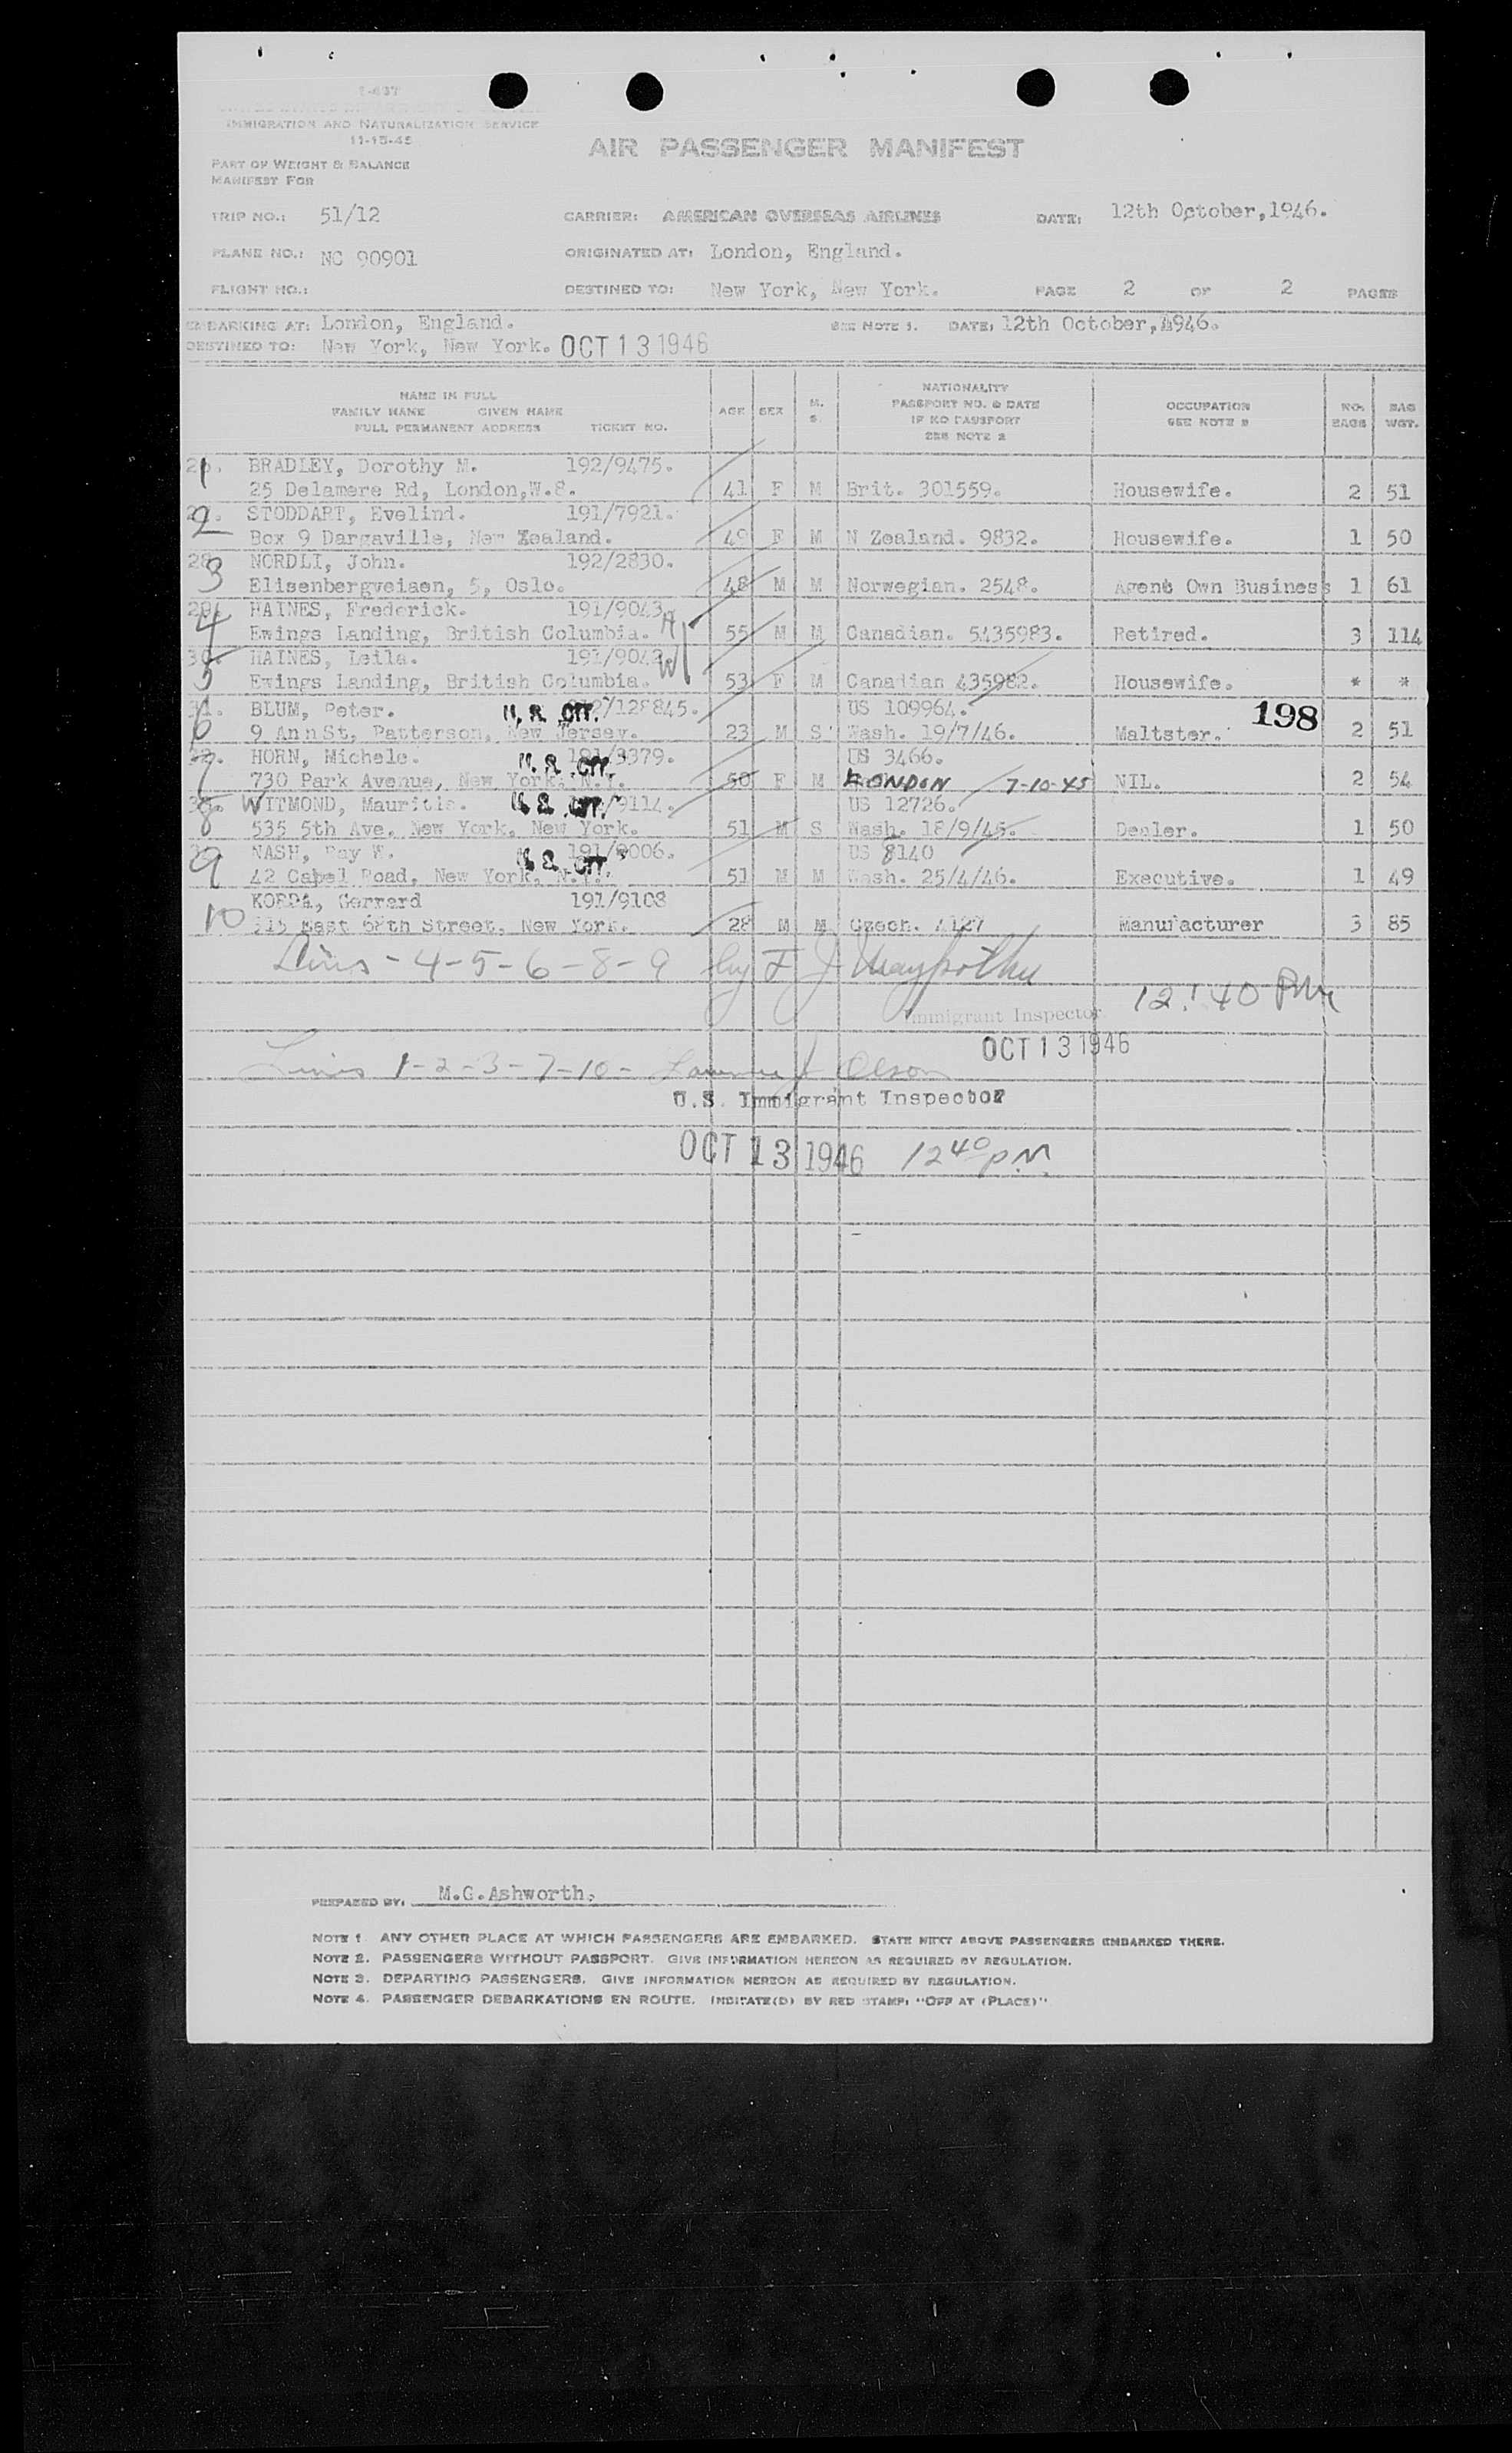 I-437
IMMIGRATION AND NATURALIZATION SERVICE
11-15-45
PART OF WEIGHT & BALANCE
MANIFEST FOR
AIR PASSENGER MANIFEST
TRIP NO.: 51/12 CARRIER: AMERICAN OVERSEAS AIRLINES DATE: 12th October,1946.
PLANE NO.: NC 90901 ORIGINATED AT: London, England.
FLIGHT NO.: DESTINED TO: New York, New York. PAGE 2 OF 2 PAGES
EMBARKING AT: London, England. SEE NOTE 1. DATE: 12th October, 1946.
DESTINED TO: New York, New York. OCT 13 1946
NAME IN FULL
FAMILY NAME GIVEN NAME
FULL PERMANENT ADDRESS TICKET NO.
AGE SEX M. S.
NATIONALITY
PASSPORT NO. & DATE
IF NO PASSPORT
SEE NOTE 2
OCCUPATION
SEE NOTE 3
NO. BAGS
BAG WGT.
1 BRADLEY, Dorothy M. 192/9475.
25 Delamere Rd, London,W.8. 41 F M Brit. 301559. Housewife. 2 51
2 STODDART, Evelind. 191/7921.
Box 9 Dargaville, New Zealand. 49 F M N Zealand. 9832. Housewife. 1 50
28 3 NORDLI, John. 192/2830.
Elisenbergveiaen, 5, Oslo. 48 M M Norwegian. 2548. Agent Own Business 1 61
29. 4 HAINES, Frederick. 191/9043 H
Ewings Landing, British Columbia. 55 M M Canadian. 5435983. Retired. 3 114
30. 5 HAINES, Leila. 191/9042 W
Ewings Landing, British Columbia. 53 F M Canadian 435982. Housewife. * *
6 BLUM, Peter. U. S. CIT. /128845. US 109964.
9 Ann St, Patterson, New Jersey. 23 M S Wash. 19/7/46. Maltster. 198 2 51
7 HORN, Michele. U. S. CIT. 191/3379. US 3466.
730 Park Avenue, New York, N.Y. 50 F M LONDON 7-10-45 NIL. 2 54
8 WITMOND, Mauritis. U. S. CIT. /9114. US 12726.
535 5th Ave, New York, New York. 51 M S Wash. 18/9/45. Dealer. 1 50
9 NASH, Ray W. U. S. CIT. 191/9006. US 8140
42 Capel Road, New York, N.Y. 51 M M Wash. 25/4/46. Executive. 1 49
KORDA, Gerrard 191/9108
10 315 East 68th Street, New York. 28 M M Czech. 4127 Manufacturer 3 85
Lines - 4-5-6-8-9 by F J
Immigrant Inspector 12:40 PM
OCT 13 1946
Lines 1-2-3-7-10- Lawrence J Olson
U.S. Immigrant Inspector
OCT 13 1946 12 40 PM
PREPARED BY: M.G.Ashworth.
NOTE 1. ANY OTHER PLACE AT WHICH PASSENGERS ARE EMBARKED. STATE NEXT ABOVE PASSENGERS EMBARKED THERE.
NOTE 2. PASSENGERS WITHOUT PASSPORT. GIVE INFORMATION HEREON AS REQUIRED BY REGULATION.
NOTE 3. DEPARTING PASSENGERS. GIVE INFORMATION HEREON AS REQUIRED BY REGULATION.
NOTE 4. PASSENGER DEBARKATIONS EN ROUTE. INDICATE(D) BY RED STAMP: "OFF AT (PLACE)"